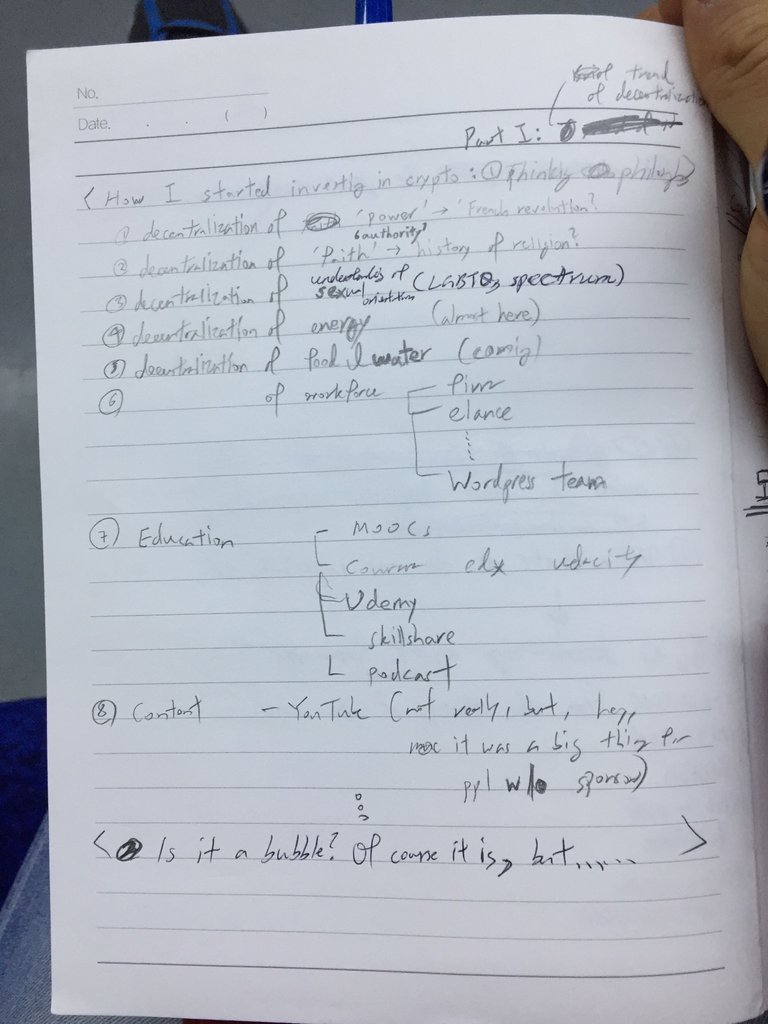 No.
Date. . . ( )
trend
of decentralization
Part I:
< How I started investig in crypto: ①
① decentralization of 'power' → 'French revolution?
'authority'
② decentralization of 'faith' → history of religion?
③ decentralization of sexual orientation (LGBTQ, spectrum)
④ decentralization of energy (almost here)
⑤ decentralization of food & water (comig)
⑥ of workforce
elance
Wordpress team
⑦ Education MOOCs
edx udacity
Udemy
skillshare
podcast
⑧ Content - YouTube (not really, but, hey,
it was a big thing for
ppl w/o sponsor)
< Is it a bubble? Of course it is, but...... >